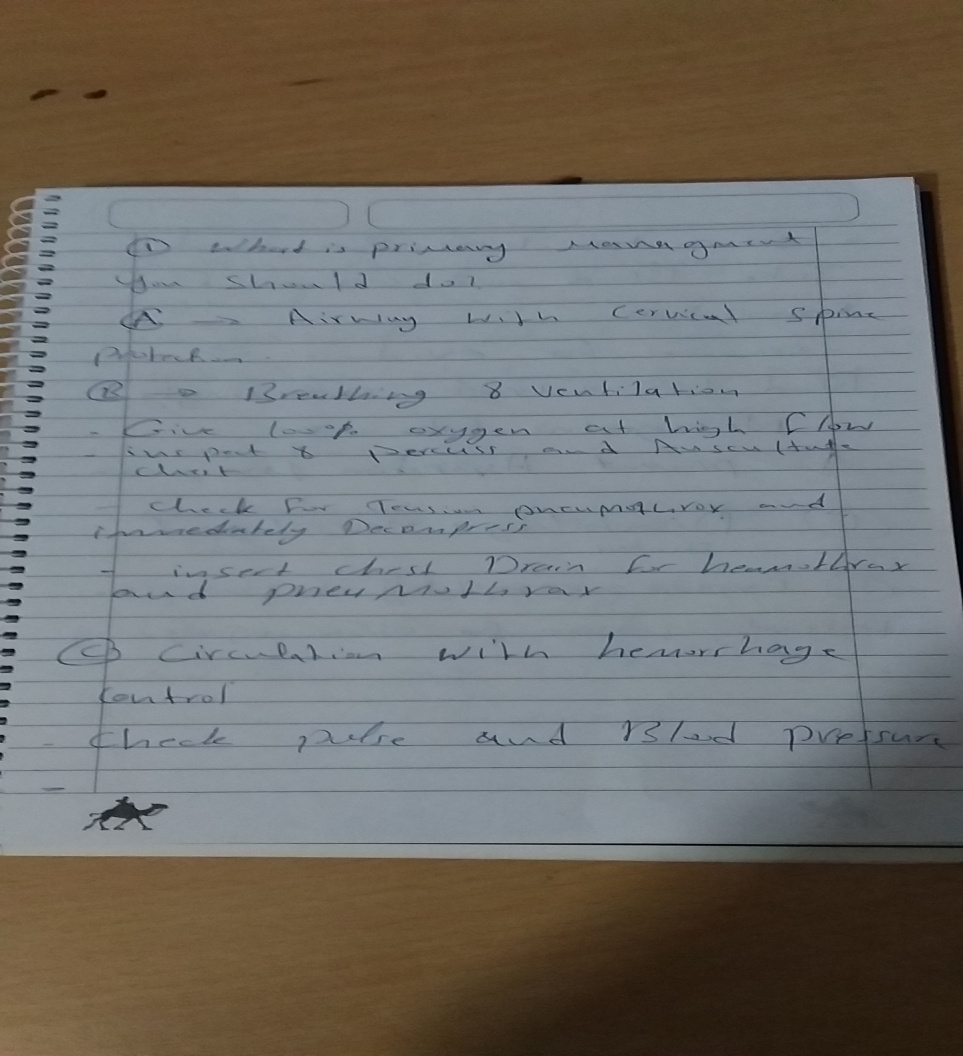 ① What is primary managment
you should do?
Ⓐ → Airway with cervical spine
protection
Ⓑ → Breathing & ventilation
- Give 100% oxygen at high flow
inspect & percuss and Auscultate
chest
- check for Tension pneumothrox and
immediately Decompress
- insert chest Drain for heamothrax
and pneumothrax
Ⓒ Circulation with hemorrhage
control
- check pulse and Blood pressure
-